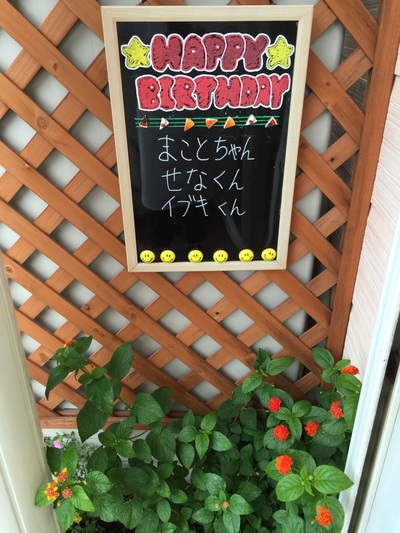 HAPPY
BIRTHDAY
まことちゃん
せなくん
イブキくん